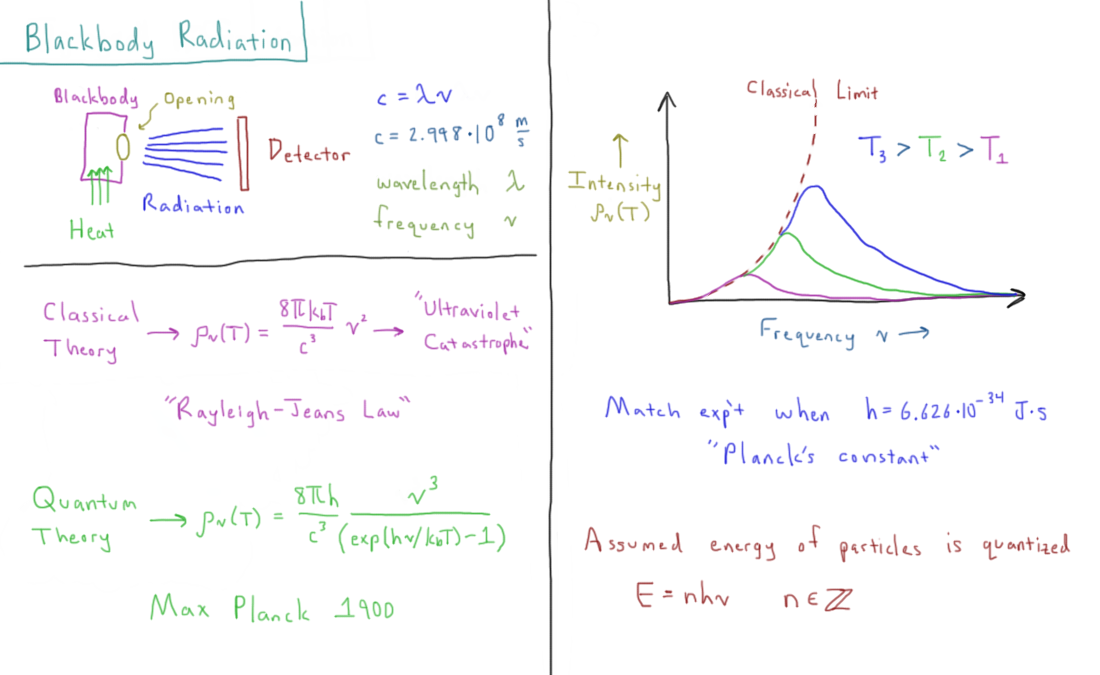 Blackbody Radiation
Blackbody
Opening
Detector
Radiation
Heat
c = λν
c = 2.998·10⁸ m/s
wavelength λ
frequency ν
Classical Theory → ρν(T) = 8πk_bT/c³ ν² → "Ultraviolet Catastrophe"
"Rayleigh-Jeans Law"
Quantum Theory → ρν(T) = 8πh/c³ ν³/(exp(hν/k_bT)-1)
Max Planck 1900
Classical Limit
T₃ > T₂ > T₁
↑
Intensity
ρν(T)
Frequency ν →
Match exp't when h = 6.626·10⁻³⁴ J·s
"Planck's constant"
Assumed energy of particles is quantized
E = nhν n∈ℤ